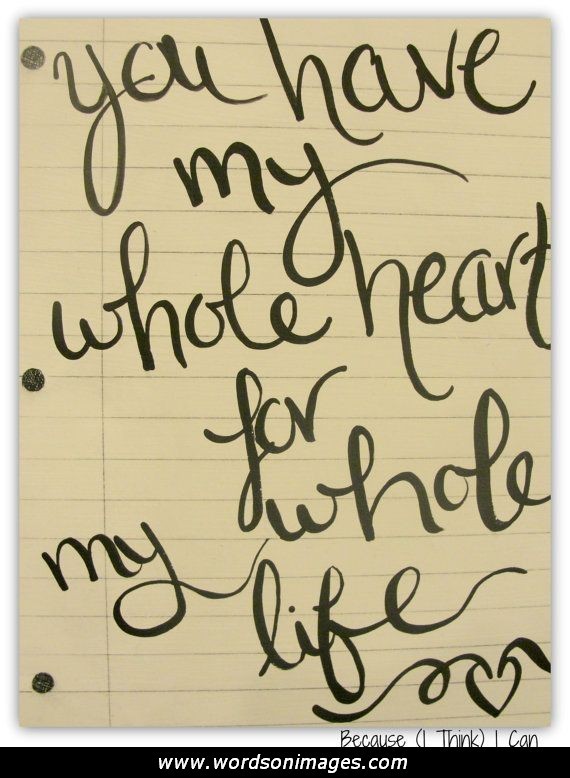 you have
my
whole heart
for
whole
my
life
Because (I Think) I Can
www.wordsonimages.com